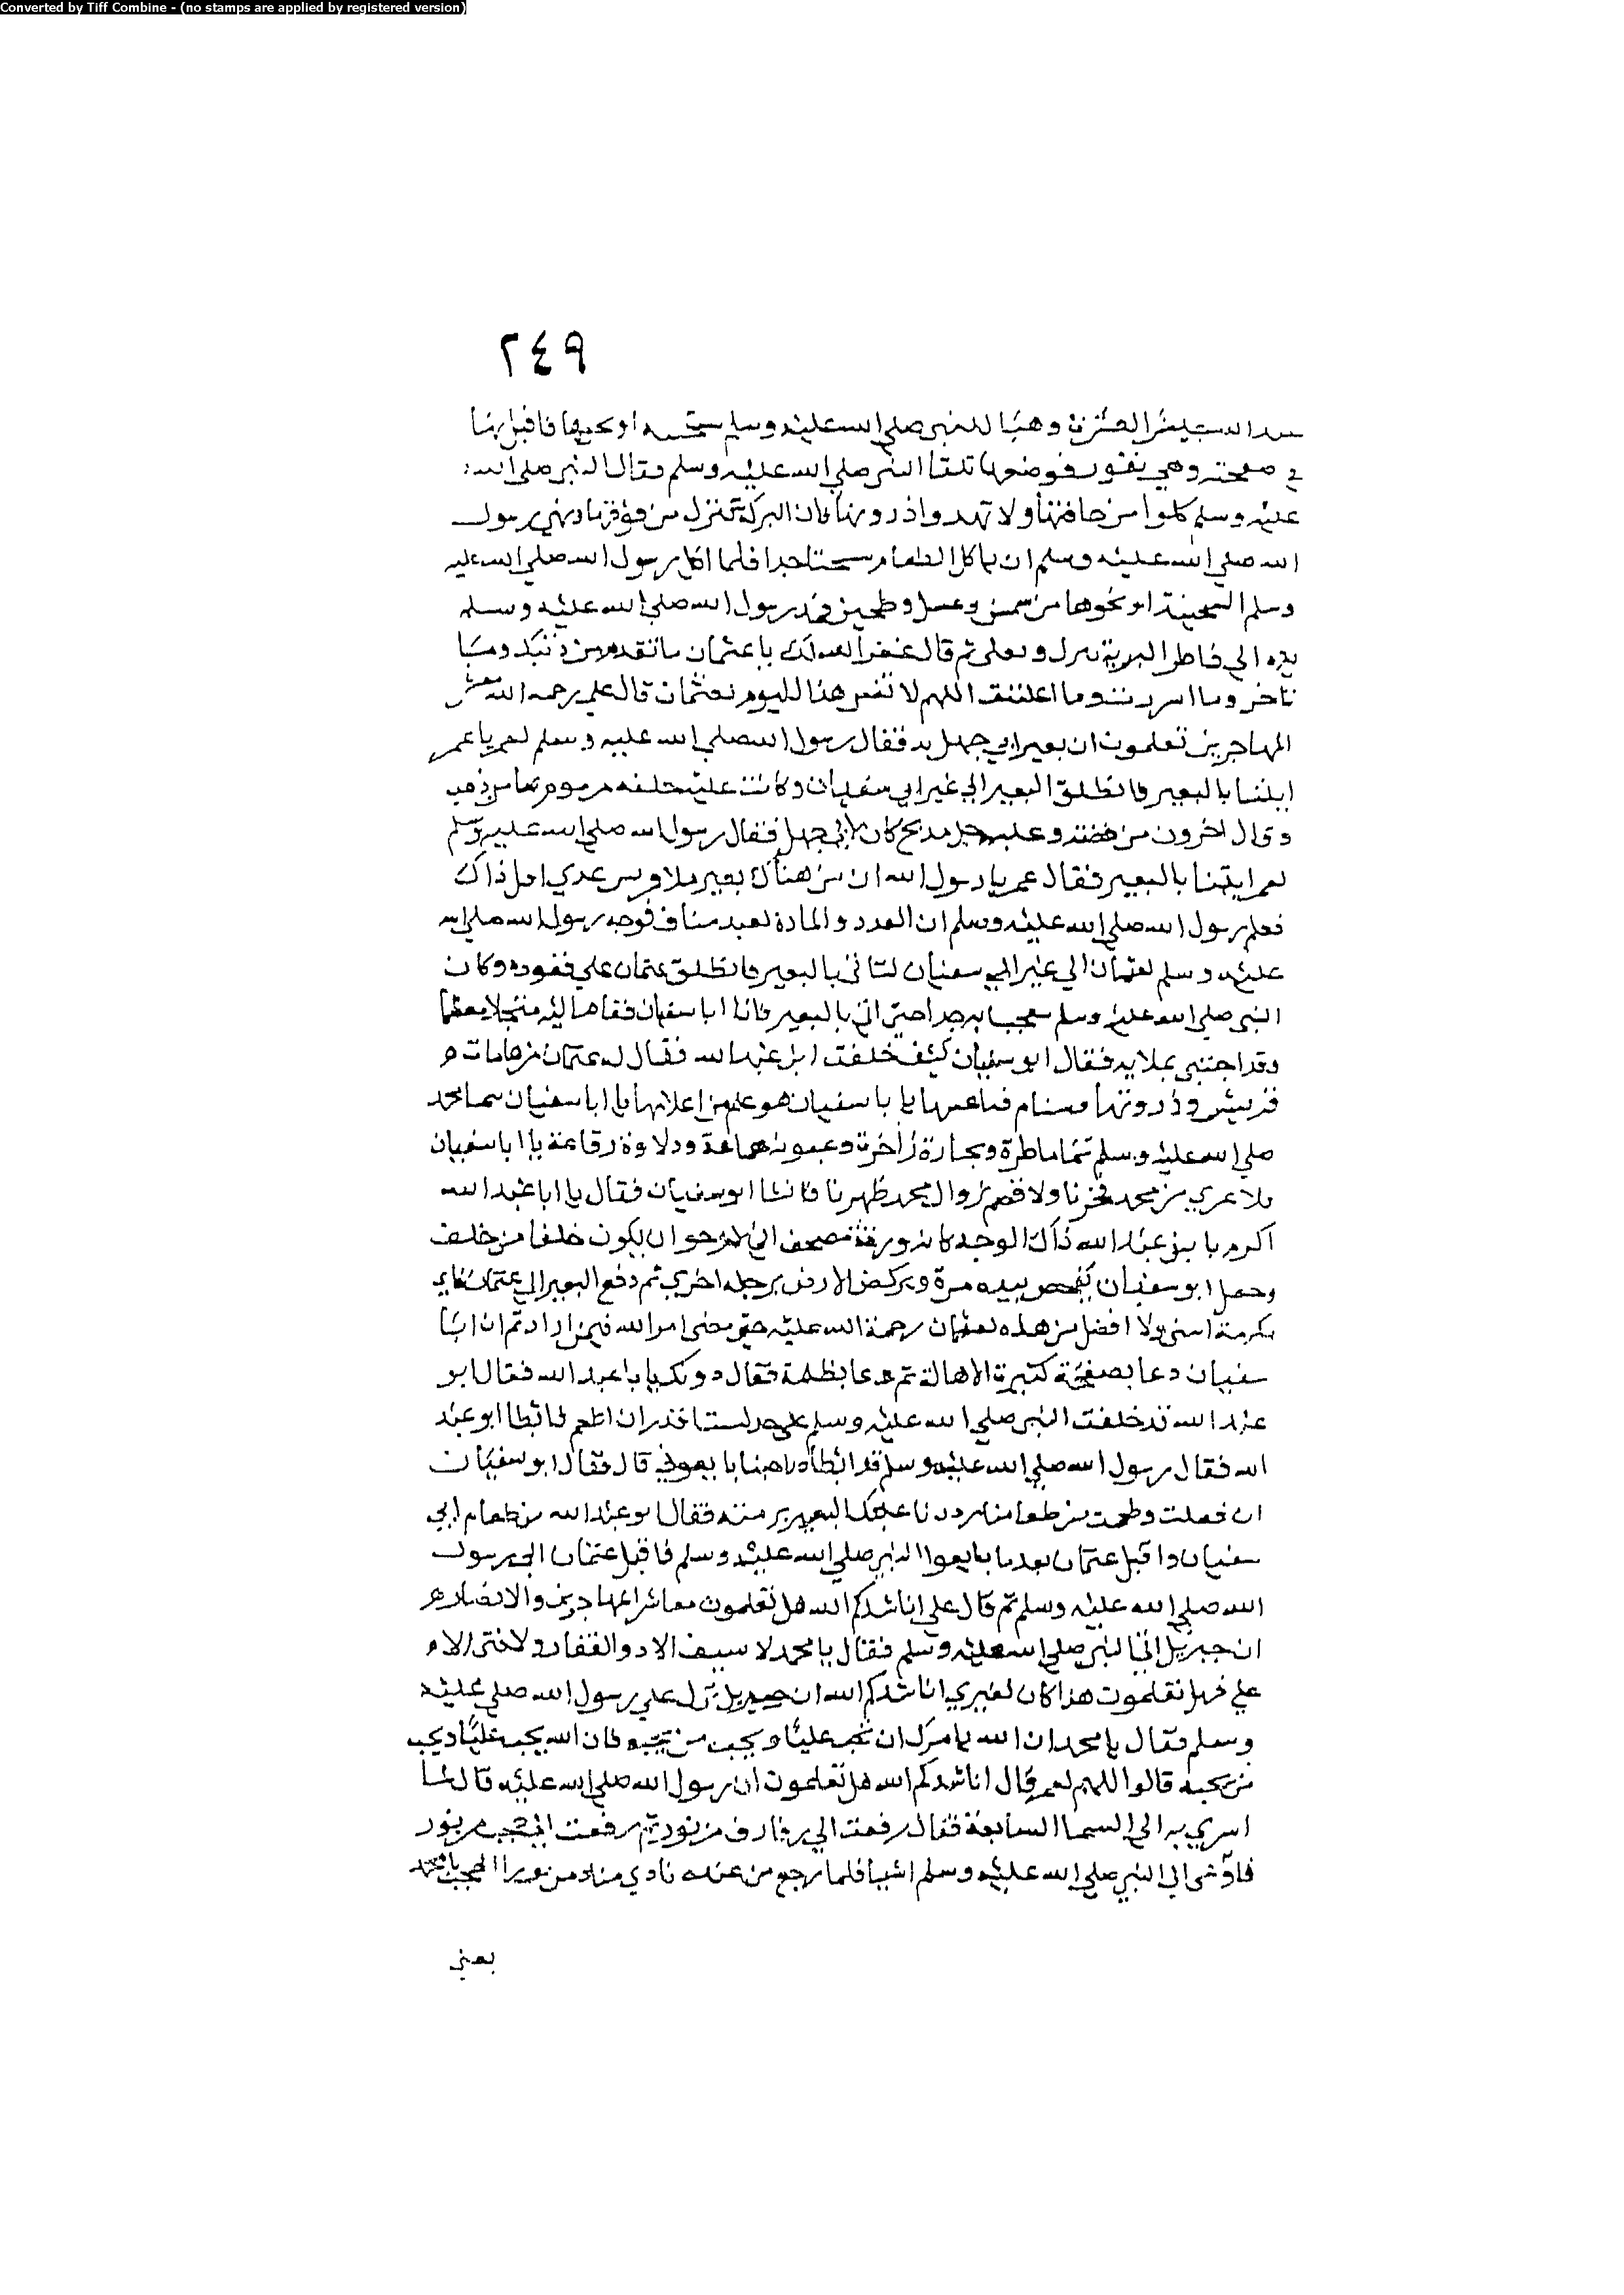 Converted by Tiff Combine - (no stamps are applied by registered version)
٢٤٩
جيش العسرة وهيا للنبي صلي الله عليه وسلم او نحوها فاقبل بها
في صحفة وهي تفور فوضعها تلقا النبي صلي الله عليه وسلم فقال النبي صلي الله
عليه وسلم كلوا من حافتها ولا تهدوا ذروتها فان البركة تنزل من فوقها ونهي رسول
الله صلي الله عليه وسلم ان ياكل الطعام سخنا جدا فلما اكل رسول الله صلي الله عليه
وسلم السخينة او نحوها من سمن وعسل وطحين مد رسول الله صلي الله عليه وسلم
يده الي فاطر البرية ثم قال غفر الله لك يا عثمان ما تقدم من ذنبك وما
تاخر وما اسررت وما اعلنت اللهم لا تنس هذا اليوم لعثمان قال علي رحمه الله معشر
المهاجرين تعلمون ان بعير ابي جهل ند فقال رسول الله صلي الله عليه وسلم لعمر يا عمر
ايتنا بالبعير فانطلق البعير الي عير ابي سفيان وكانت عليه حلقة مزموم بها من ذهب
وقال اخرون من فضة وعليه جل مدبج كان لابي جهل فقال رسول الله صلي الله عليه وسلم
لعمر ايتنا بالبعير فقال عمر يا رسول الله ان من هناك بعير ملا قريش عدي اقل ذاك
فعلم رسول الله صلي الله عليه وسلم ان العدد والمادة لعبد مناف فوجه رسول الله صلي الله
عليه وسلم بعثمان الي عير ابي سفيان لتاتي بالبعير فانطلق عثمان علي قعوده وكان
النبي صلي الله عليه وسلم معجبا به جدا حتي اتي بالبعير فاتا ابا سفيان فقام اليه متبجلا معظما
وقد احتبي بملايه فقال ابو سفيان كيف خلفت ابن عبد الله فقال له عثمان من هامات
قريش وذروتها وسنام يا با سفيان هو علم من اعلامها يا ابا سفيان سما محمد
صلي الله عليه وسلم سما ماطرة وبحاره زاخرة وعيونه هماعة ودلاوه رقاعة يا ابا سفيان
فلا عري من محمد فخرنا ولا قصم بزوال محمد ظهرنا فانشا ابو سفيان فقال يا ابا عبد الله
اكرم بابن عبد الله ذاك الوجه كانه ورقة مصحف اني لارجو ان يكون خلفا من خلف
وجعل ابو سفيان يفحص بيده مرة ويركض الارض برجله اخري ثم دفع البعير الي عثمان فاي
مكرمة اسني ولا افضل من هذه لعثمان رحمة الله عليه حتي مضي امر الله فيمن اراد ثم ان ابا
سفيان دعا بصفحة كثيرة الاهالة ثم دعا بطلمة فقال دونك يا با عبد الله فقال ابو
عبد الله قد خلفت النبي صلي الله عليه وسلم علي حد لست اقدر ان اطعم فابطا ابو عبد
الله فقال رسول الله صلي الله عليه وسلم قد ابطا صاحبنا بايعوني قال فقال ابو سفيان
ان فعلت وطعمت من طعامنا رددنا عليك البعير برمته فقال ابو عبد الله من طعام ابي
سفيان واقبل عثمان بعد ما بايعوا النبي صلي الله عليه وسلم فاقبل عثمان الي رسول
الله صلي الله عليه وسلم ثم قال علي اناشدكم الله هل تعلمون معاشر المهاجرين والانصار
ان جبريل اتي النبي صلي الله عليه وسلم فقال يا محمد لا سيف الا ذو الفقار ولا فتي الا
علي فهل تعلمون هذا كان لغيري اناشدكم الله ان جبريل نزل علي رسول الله صلي عليه
وسلم فقال يا محمد ان الله يامرك ان تحب عليا وتحب من يحبه فان الله يحب عليا ويحب
من يحبه قالوا اللهم نعم قال اناشدكم الله هل تعلمون ان رسول الله صلي الله عليه قال لما
اسري به الي السما السابعة فقال رفعت الي رفارف من نور ثم رفعت الي حجب من نور
فاوحي الي النبي صلي الله عليه وسلم اشيا فلما رجع من عنده نادي مناد من ورا الحجب يا محمد